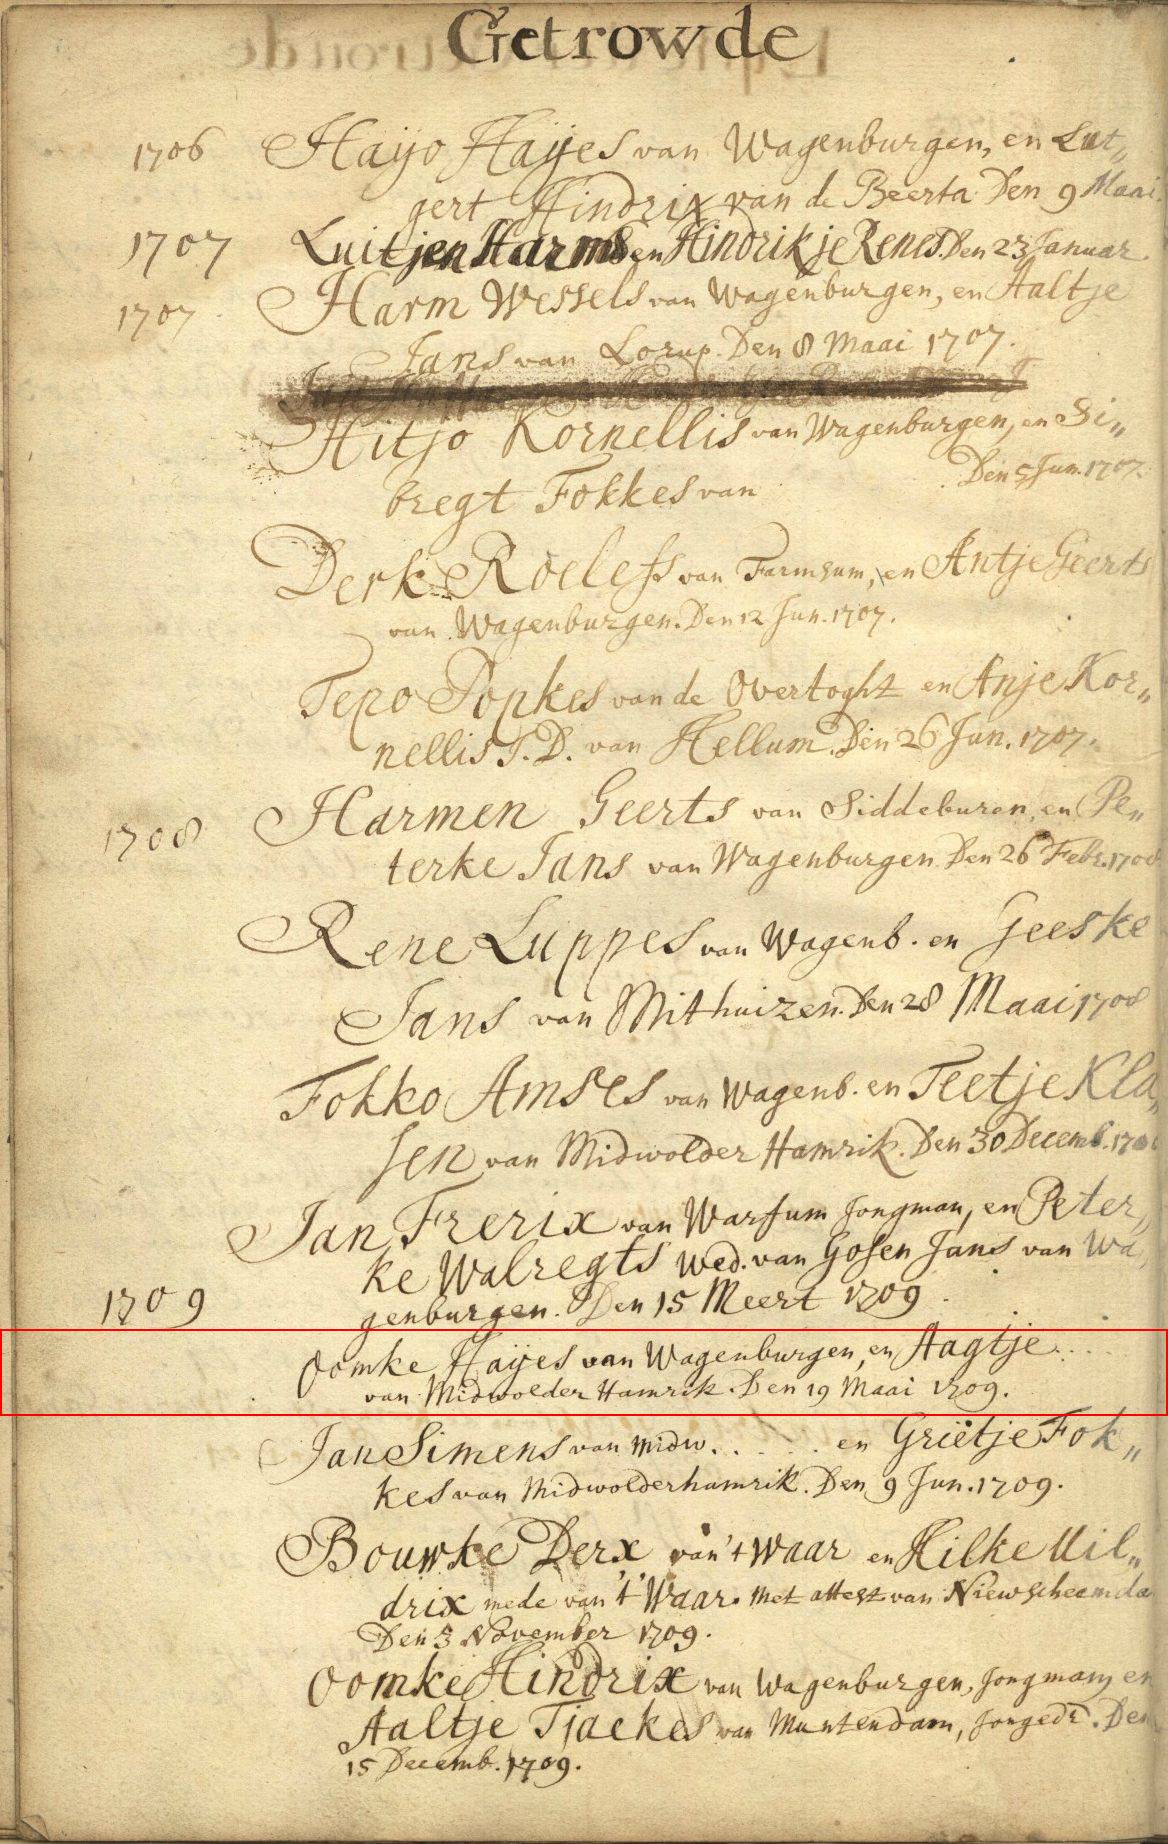 Getrowde
1706 Haijo Haijes van Wagenburgen, en Lut„
gert Hindrix van de Beerta Den 9 Maai
1707 Luitjen Harms en Hindrikje Renes. Den 23 Januar.
1707 Harm Wessels van Wagenburgen, en Aaltje
Jans van Lorup. Den 8 Maai 1707.
Hitjo Kornellis van Wagenburgen, en Si„
Den 5 Jun. 1707.
bregt Fokkes van
Derk Roelefs van Farmsum, en Antje Geerts
van Wagenburgen. Den 12 Jun. 1707.
Tepo Popkes van de Overtoght en Anje Kor„
nellis J. D. van Hellum. Den 26 Jun. 1707.
1708 Harmen Geerts van Siddeburen, en Pe„
terke Jans van Wagenburgen Den 26 Febr. 1708
Rene Luppes van Wagenb. en Geeske
Jans van Mithuizen. Den 28 Maai 1708
Fokko Amses van Wagenb. en Teetje Kla„
sen van Midwolder Hamrik. Den 30 Decemb.
Jan Frerix van Warfum Jongman, en Peter„
ke Walregts Wed. van Gosen Jans van Wa„
1709 genburgen. Den 15 Meert 1709.
Oomke Haijes van Wagenburgen, en Aagtje....
van Midwolder Hamrik. Den 19 Maai 1709.
Jan Simens van Midw...... en Grietje Fok„
kes van Midwolderhamrik. Den 9 Jun. 1709.
Bouwke Derx van 't Waar en Hilke Uil„
drix mede van 't Waar. Met attest van Niewscheemda
Den 3 November 1709.
Oomke Hindrix van Wagenburgen, Jongman, en
Aaltje Tjaekes van Muntendam, Jonged. Den
15 Decemb. 1709.